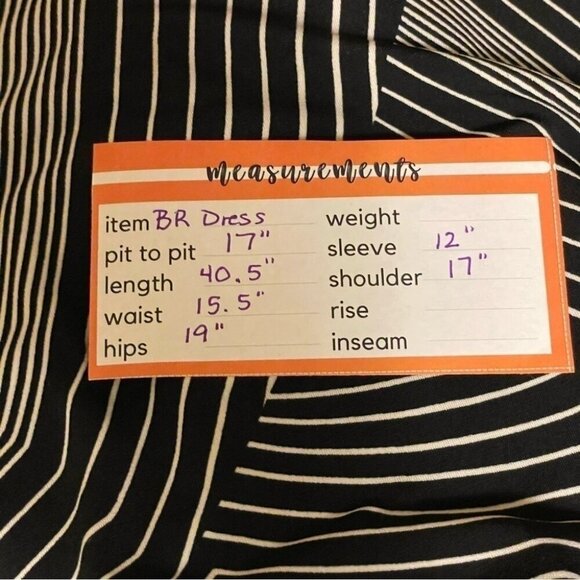 measurements
item BR Dress
pit to pit 17"
length 40.5"
waist 15.5"
hips 19"
weight
sleeve 12"
shoulder 17"
rise
inseam